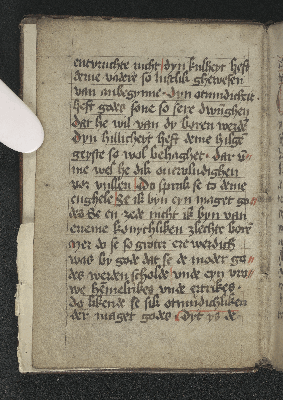 envruchte nicht dyn kusheyt heft
deme vadere so lustlik ghewesen
van anbegynne · dyn otmudicheit
heft godes sone so sere dwunghen
dat he wil van dy boren werdē
Dyn hillicheyt heft deme hilgē
geyste so wol behaghet · dar ū-
me wel he dik ouerulodighen
ver vullen Do sprak se to deme
enghele Se ik byn eyn maget go
des Se en zede nicht ik byn van
eneme konichliken slechte bore
mer do se so groter ere werdich
was by gode dat se de moder go
des werden scholde vnde eyn vro
we hēmelrikes vnde ertrikes ·
do likende se sik otmudichliken
der maget godes Dyt is de